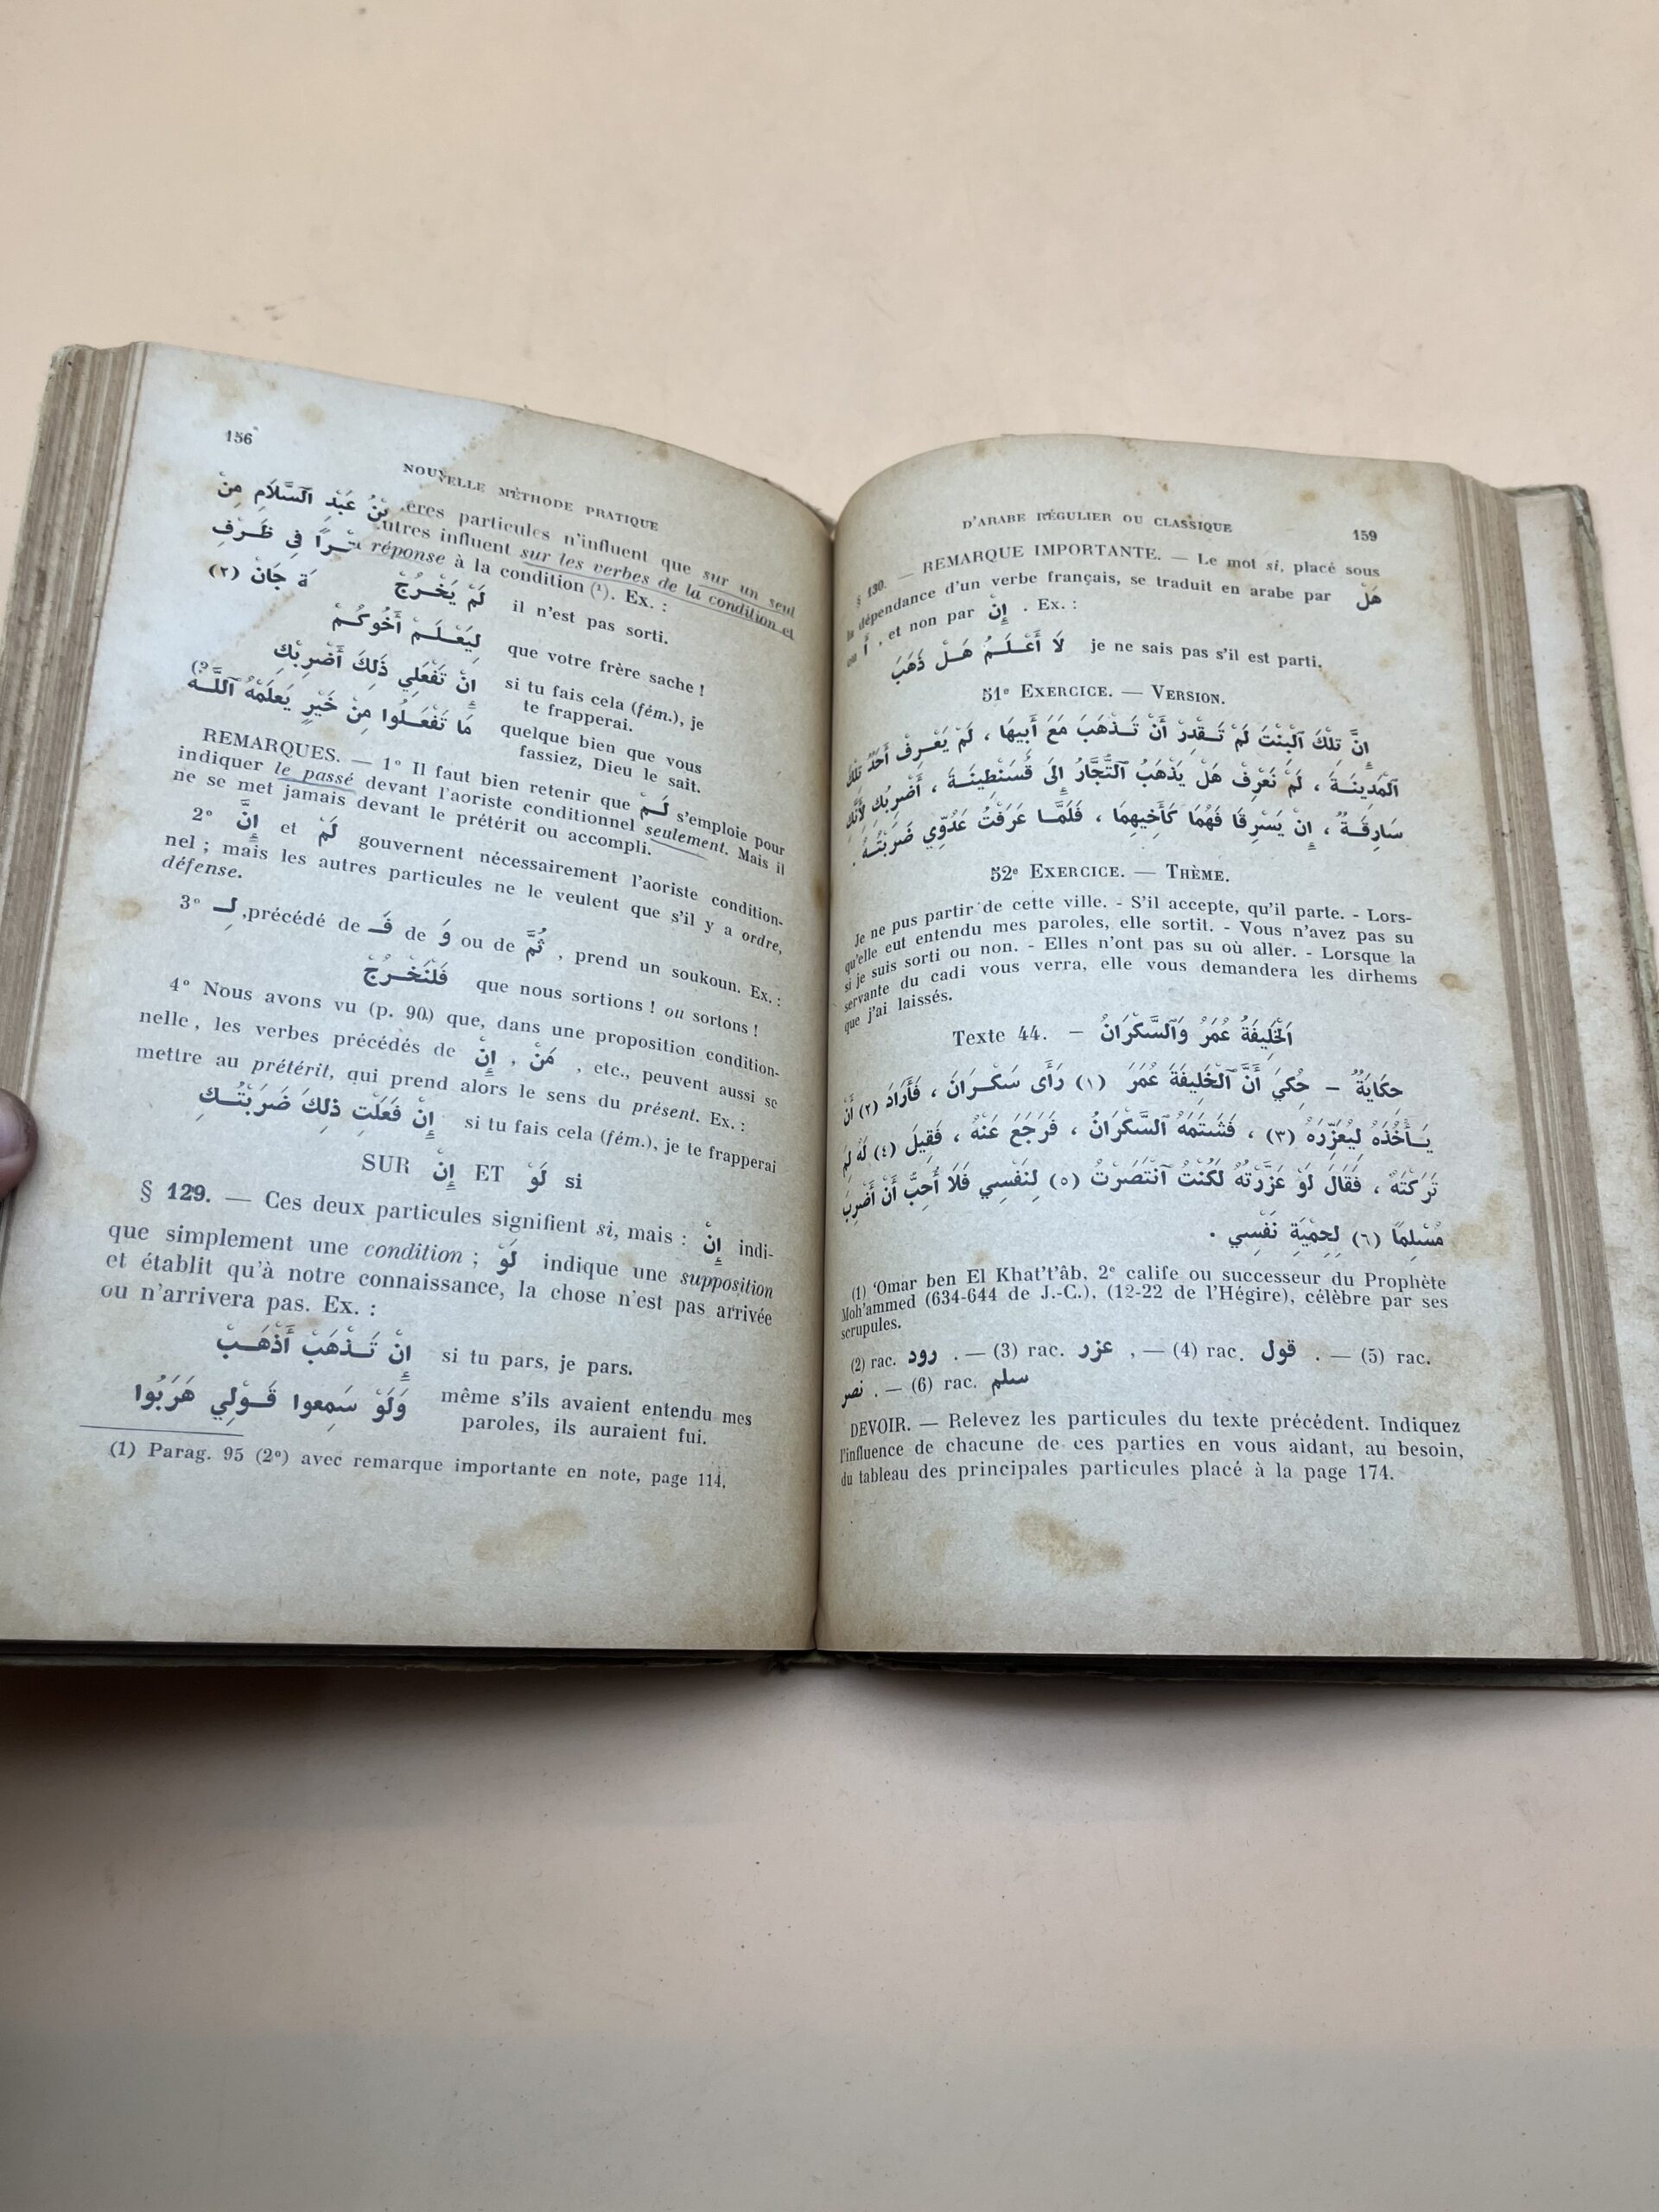 156
NOUVELLE MÉTHODE PRATIQUE
بْنُ عَبْدِ ٱلسَّلَامِ مِنْ
ères particules n'influent que sur un seul
فِي ظَـرْفِ
utres influent sur les verbes de la condition et
réponse à la condition (¹). Ex. :
ةَ جَانْ (٢)
لَمْ يَخْـرُجْ il n'est pas sorti.
لِيَعْـلَـمْ أَخُوكُـمْ que votre frère sache !
إِنْ تَفْعَلِي ذَلِكَ أَضْرِبْكِ si tu fais cela (fém.), je
te frapperai.
مَا تَفْعَـلُوا مِنْ خَيْرٍ يَعْلَمْهُ ٱللَّـهُ quelque bien que vous
fassiez, Dieu le sait.
REMARQUES. — 1° Il faut bien retenir que لَـمْ s'emploie pour
indiquer le passé devant l'aoriste conditionnel seulement. Mais il
ne se met jamais devant le prétérit ou accompli.
2° إِنَّ et لَمْ gouvernent nécessairement l'aoriste condition-
nel ; mais les autres particules ne le veulent que s'il y a ordre,
défense.
3° لِـ , précédé de فَـ de وَ ou de ثُمَّ , prend un soukoun. Ex. :
فَلْنَخْـرُجْ que nous sortions ! ou sortons !
4° Nous avons vu (p. 90) que, dans une proposition condition-
nelle, les verbes précédés de إِنْ , مَنْ , etc., peuvent aussi se
mettre au prétérit, qui prend alors le sens du présent. Ex. :
إِنْ فَعَلْتِ ذٰلِكَ ضَرَبْتُـكِ si tu fais cela (fém.), je te frapperai
SUR إِنْ ET لَوْ si
§ 129. — Ces deux particules signifient si, mais : إِنْ indi-
que simplement une condition ; لَوْ indique une supposition
et établit qu'à notre connaissance, la chose n'est pas arrivée
ou n'arrivera pas. Ex. :
إِنْ تَـذْهَبْ أَذْهَـبْ si tu pars, je pars.
وَلَوْ سَمِعوا قَـوْلِي هَرَبُوا même s'ils avaient entendu mes
paroles, ils auraient fui.
(1) Parag. 95 (2°) avec remarque importante en note, page 114.
D'ARABE RÉGULIER OU CLASSIQUE
159
§ 130. — REMARQUE IMPORTANTE. — Le mot si, placé sous
la dépendance d'un verbe français, se traduit en arabe par هَلْ
ou أَ , et non par إِنْ . Ex. :
لَا أَعْـلَـمُ هَـلْ ذَهَبَ je ne sais pas s'il est parti.
51e EXERCICE. — VERSION.
إِنَّ تِلْكَ ٱلْبِنْتَ لَمْ تَـقْدِرْ أَنْ تَـذْهَبَ مَعَ أَبِيهَا ، لَمْ يَعْـرِفْ أَحَدٌ تِلْكَ
ٱلْمَدِينَـةَ ، لَمْ نَعْرِفْ هَلْ يَذْهَبُ ٱلتُّجَّارُ إِلَى قُسَنْطِينَـةَ ، أَضْرِبُكِ لِأَنَّكِ
سَارِقَـةٌ ، إِنْ يَسْرِقَا فَهُمَا كَأَخِيهِمَا ، فَلَمَّـا عَرَفْتُ عَدُوِّي ضَرَبْتُـهُ .
52e EXERCICE. — THÈME.
Je ne pus partir de cette ville. - S'il accepte, qu'il parte. - Lors-
qu'elle eut entendu mes paroles, elle sortit. - Vous n'avez pas su
si je suis sorti ou non. - Elles n'ont pas su où aller. - Lorsque la
servante du cadi vous verra, elle vous demandera les dirhems
que j'ai laissés.
Texte 44. — اَلْخَلِيفَةُ عُمَرُ وَٱلسَّكْرَانُ
حِكَايَةٌ — حُكِيَ أَنَّ ٱلْخَلِيفَةَ عُمَرَ (١) رَأَى سَكْـرَانَ ، فَأَرَادَ (٢) أَنْ
يَـأْخُذَهُ لِيُعَزِّرَهُ (٣) ، فَشَتَمَهُ ٱلسَّكْرَانُ ، فَرَجَعَ عَنْهُ ، فَقِيلَ (٤) لَهُ لِمَ
تَرَكْتَهُ ، فَقَالَ لَوْ عَزَّرْتُهُ لَكُنْتُ ٱنْتَصَرْتُ (٥) لِنَفْسِي فَلَا أُحِبُّ أَنْ أَضْرِبَ
مُسْلِمًا (٦) لِحِمْيَةِ نَفْسِي .
(1) 'Omar ben El Khat't'âb, 2e calife ou successeur du Prophète
Moh'ammed (634-644 de J.-C.), (12-22 de l'Hégire), célèbre par ses
scrupules.
(2) rac. رود . — (3) rac. عزر , — (4) rac. قول . — (5) rac.
نصر . — (6) rac. سلم
DEVOIR. — Relevez les particules du texte précédent. Indiquez
l'influence de chacune de ces parties en vous aidant, au besoin,
du tableau des principales particules placé à la page 174.